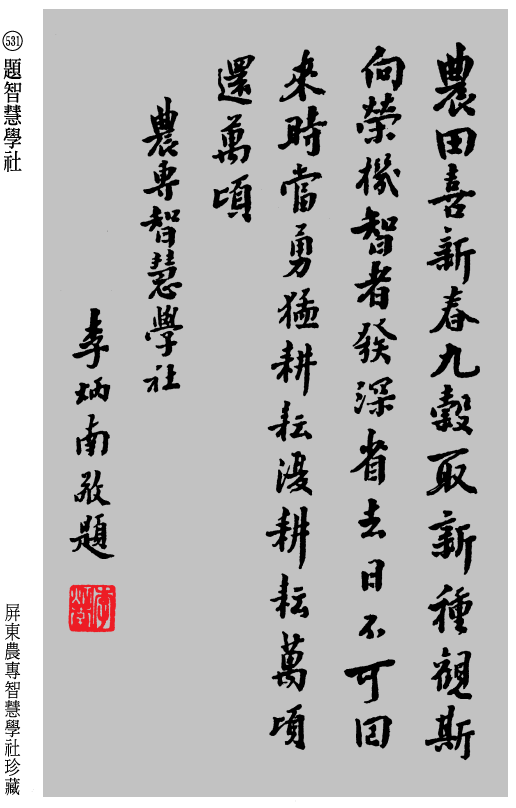 農田喜新春九穀取新種觀斯
向榮機智者發深省去日不可回
來時當勇猛耕耘復耕耘萬頃
還萬頃
農專智慧學社
李炳南敬題
531 題智慧學社
屏東農專智慧學社珍藏